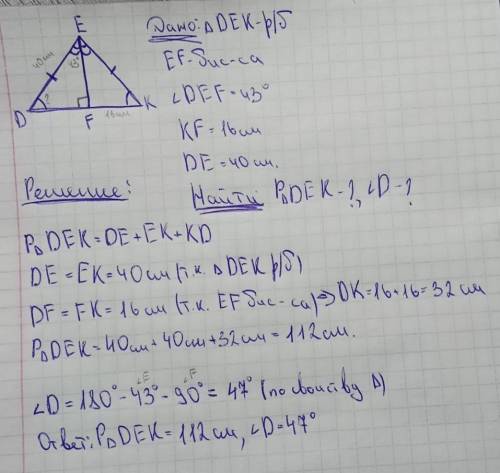 E
40см
43°
?
D
F
16см
K
Дано: ΔDEK-р/б
EF-бис-са
∠DEF=43°
KF=16см
DE=40см.
Решение:
Найти P△DEK-?, ∠D-?
P△DEK=DE+EK+KD
DE=EK=40см (т.к. ΔDEK р/б)
DF=FK=16см (т.к. EF бис-са)⇒DK=16+16=32см
P△DEK=40см+40см+32см=112см.
∠E ∠F
∠D=180°-43°-90°=47° (по свойству Δ)
Ответ: P△DEK=112см, ∠D=47°